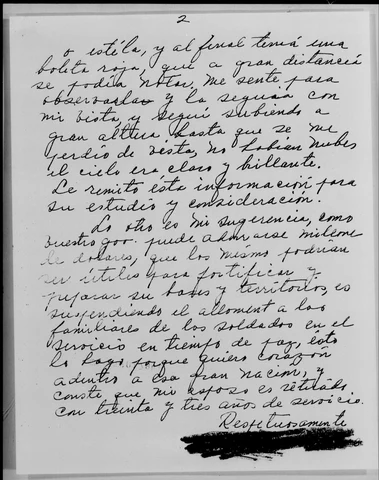 2
o estéla, y al final tenía una
bolita roja, que a gran distancia
se podía notar. Me sente para
observarla y la seguia con
mi vista, y seguí subiendo a
gran altura hasta que se me
perdío de vista, no habian nubes
el cielo era claro y brillante.
Le remito ésta información para
su estudio y consideración.
Lo otro es mi sugerencia, como
nuestro gov. puede ahorrarse millone
de dolares, que los mismo podrían
ser útiles para fortificar y
preparar su bases y territorios, es
suspendiendo el alloment a los
familiares de los soldados en el
servicio en tiempo de paz, esto
lo hago porque quiero corazón
adentro a esa gran nación, y
conste que mi esposo es retirado
con treinta y tres años de servicio.
Respetuosamente